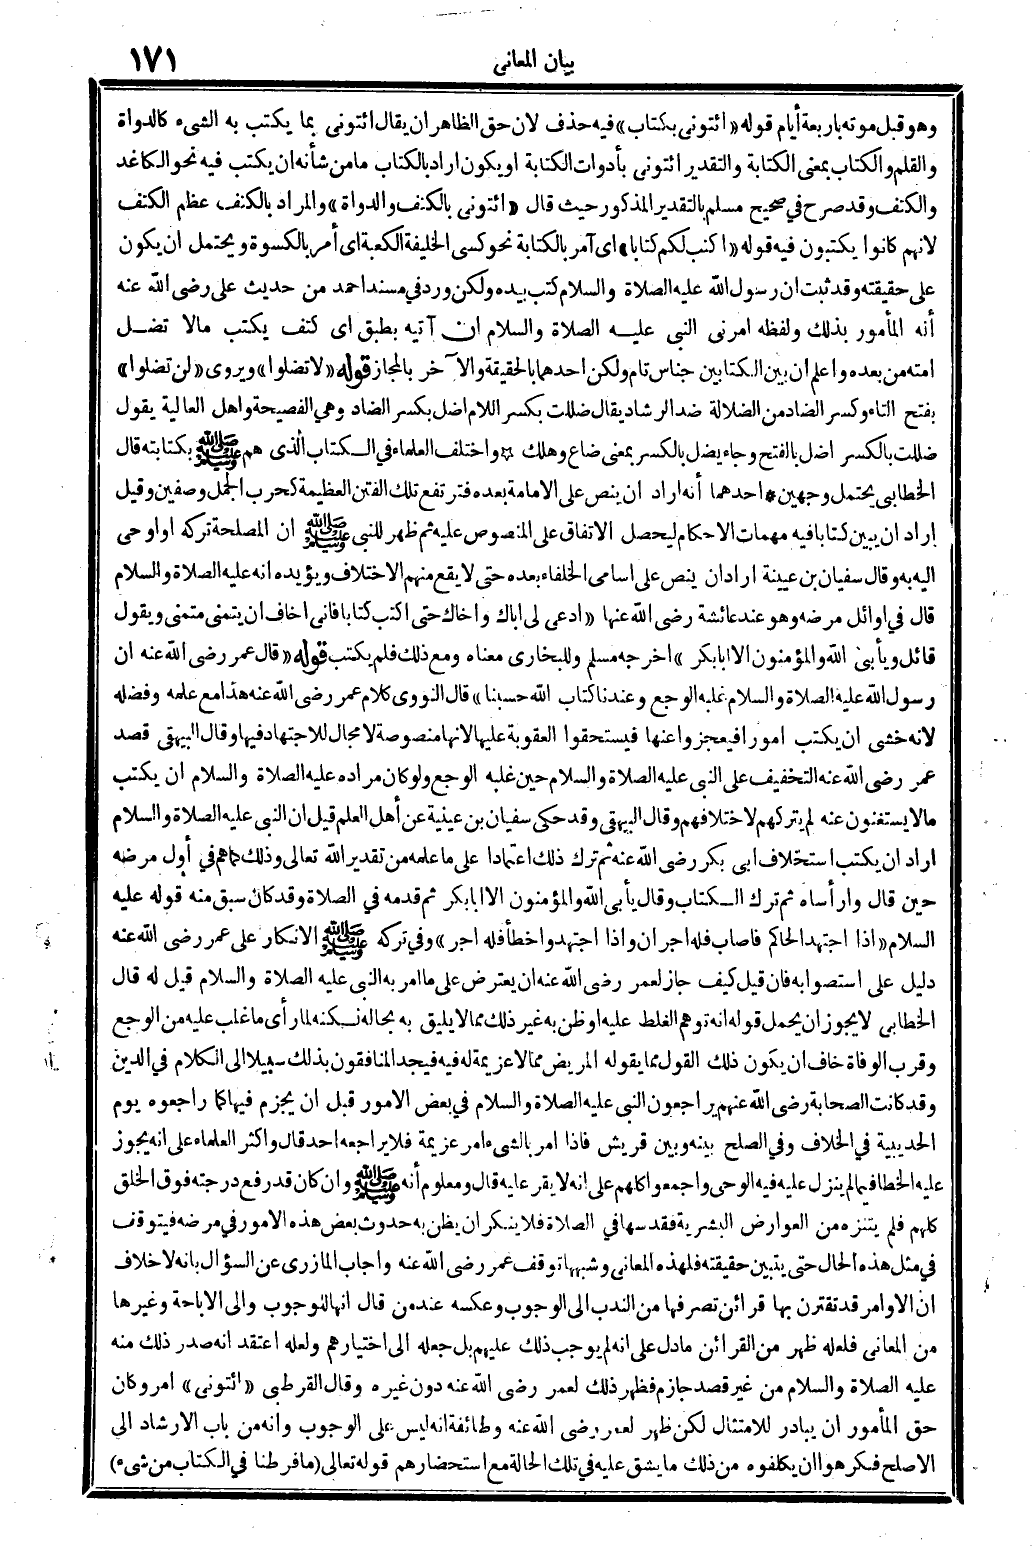 بيان المعانى
١٧١
وهو قبل موته باربعة أيام قوله «ائتونى بكتاب» فيه حذف لان حق الظاهر ان يقال ائتونى بما يكتب به الشىء كالدواة
والقلم والكتاب بمعنى الكتابة والتقدير ائتونى بأدوات الكتابة او يكون اراد بالكتاب مامن شأنه ان يكتب فيه نحو الكاغد
والكتف وقد صرح فى صحيح مسلم بالتقدير المذكور حيث قال «ائتونى بالكتف والدواة» والمراد بالكتف عظم الكتف
لانهم كانوا يكتبون فيه قوله «اكتب لكم كتابا» اى آمر بالكتابة نحو كسى الخليفة الكعبة اى أمر بالكسوة ويحتمل ان يكون
على حقيقته وقد ثبت ان رسول الله عليه الصلاة والسلام كتب بيده ولكن ورد فى مسند احمد من حديث على رضى الله عنه
أنه المأمور بذلك ولفظه امرنى النبى عليه الصلاة والسلام ان آتيه بطبق اى كتف يكتب مالا تضل
امته من بعده واعلم ان بين الكتابين جناس تام ولكن احدهما بالحقيقة والآخر بالمجاز قوله «لا تضلوا» ويروى «لن تضلوا»
بفتح التاء وكسر الضاد من الضلالة ضد الرشاد يقال ضللت بكسر اللام اضل بكسر الضاد وهى الفصيحة واهل العالية يقول
ضللت بالكسر اضل بالفتح وجاء يضل بالكسر بمعنى ضاع وهلك ☆ واختلف العلماء فى الكتاب الذى هم ﷺ بكتابته قال
الخطابى يحتمل وجهين * احدهما أنه اراد ان ينص على الامامة بعده فترتفع تلك الفتن العظيمة كحرب الجمل وصفين وقيل
اراد ان يبين كتابا فيه مهمات الاحكام ليحصل الاتفاق على المنصوص عليه ثم ظهر للنبى ﷺ ان المصلحة تركه او اوحى
اليه به وقال سفيان بن عيينة اراد ان ينص على اسامى الخلفاء بعده حتى لا يقع منهم الاختلاف ويؤيده انه عليه الصلاة والسلام
قال فى اوائل مرضه وهو عند عائشة رضى الله عنها «ادعى لى اباك واخاك حتى اكتب كتابا فانى اخاف ان يتمنى متمنى ويقول
قائل ويأبى الله والمؤمنون الا ابابكر» اخرجه مسلم وللبخارى معناه ومع ذلك فلم يكتب قوله «قال عمر رضى الله عنه ان
رسول الله عليه الصلاة والسلام غلبه الوجع وعندنا كتاب الله حسبنا» قال النووى كلام عمر رضى الله عنه هذا مع علمه وفضله
لانه خشى ان يكتب امورا فيعجزوا عنها فيستحقوا العقوبة عليها لانها منصوصة لامجال للاجتهاد فيها وقال البيهقى قصد
عمر رضى الله عنه التخفيف على النبى عليه الصلاة والسلام حين غلبه الوجع ولو كان مراده عليه الصلاة والسلام ان يكتب
مالا يستغنون عنه لم يتركهم لاختلافهم وقال البيهقى وقد حكى سفيان بن عيينة عن أهل العلم قيل ان النبى عليه الصلاة والسلام
اراد ان يكتب استخلاف ابى بكر رضى الله عنه ثم ترك ذلك اعتمادا على ما علمه من تقدير الله تعالى وذلك كماهم فى أول مرضه
حين قال وارأساه ثم ترك الكتاب وقال يأبى الله والمؤمنون الا ابابكر ثم قدمه فى الصلاة وقد كان سبق منه قوله عليه
السلام «اذا اجتهد الحاكم فاصاب فله اجران واذا اجتهد واخطأ فله اجر» وفى تركه ﷺ الانكار على عمر رضى الله عنه
دليل على استصوابه فان قيل كيف جاز لعمر رضى الله عنه ان يعترض على ما امر به النبى عليه الصلاة والسلام قيل له قال
الخطابى لا يجوز ان يحمل قوله انه توهم الغلط عليه او ظن به غير ذلك مما لا يليق به بحاله لكنه لما رأى ما غلب عليه من الوجع
وقرب الوفاة خاف ان يكون ذلك القول مما يقوله المريض مما لا عزيمة له فيه فيجد المنافقون بذلك سبيلا الى الكلام فى الدين
وقد كانت الصحابة رضى الله عنهم يراجعون النبى عليه الصلاة والسلام فى بعض الامور قبل ان يجزم فيها كما راجعوه يوم
الحديبية فى الخلاف وفى الصلح بينه وبين قريش فاذا امر بالشىء امر عزيمة فلا يراجعه احد قال واكثر العلماء على انه يجوز
عليه الخطا فيما لم ينزل عليه فيه الوحى واجمعوا كلهم على انه لا يقر عليه قال ومعلوم أنه ﷺ وان كان قد رفع درجته فوق الخلق
كلهم فلم يتنزه من العوارض البشرية فقد سها فى الصلاة فلا ينكر ان يظن به حدوث بعض هذه الامور فى مرضه فيتوقف
فى مثل هذه الحال حتى يتبين حقيقته فلهذه المعانى وشبهها توقف عمر رضى الله عنه واجاب المازرى عن السؤال بانه لا خلاف
ان الاوامر قد تقترن بها قرائن تصرفها من الندب الى الوجوب وعكسه عند من قال انها للوجوب والى الاباحة وغيرها
من المعانى فلعله ظهر من القرائن مادل على انه لم يوجب ذلك عليهم بل جعله الى اختيارهم ولعله اعتقد انه صدر ذلك منه
عليه الصلاة والسلام من غير قصد جازم فظهر ذلك لعمر رضى الله عنه دون غيره وقال القرطبى «ائتونى» امر وكان
حق المأمور ان يبادر للامتثال لكن ظهر لعمر رضى الله عنه وطائفة انه ليس على الوجوب وانه من باب الارشاد الى
الاصلح فكرهوا ان يكلفوه من ذلك ما يشق عليه فى تلك الحالة مع استحضارهم قوله تعالى (ما فرطنا فى الكتاب من شىء)